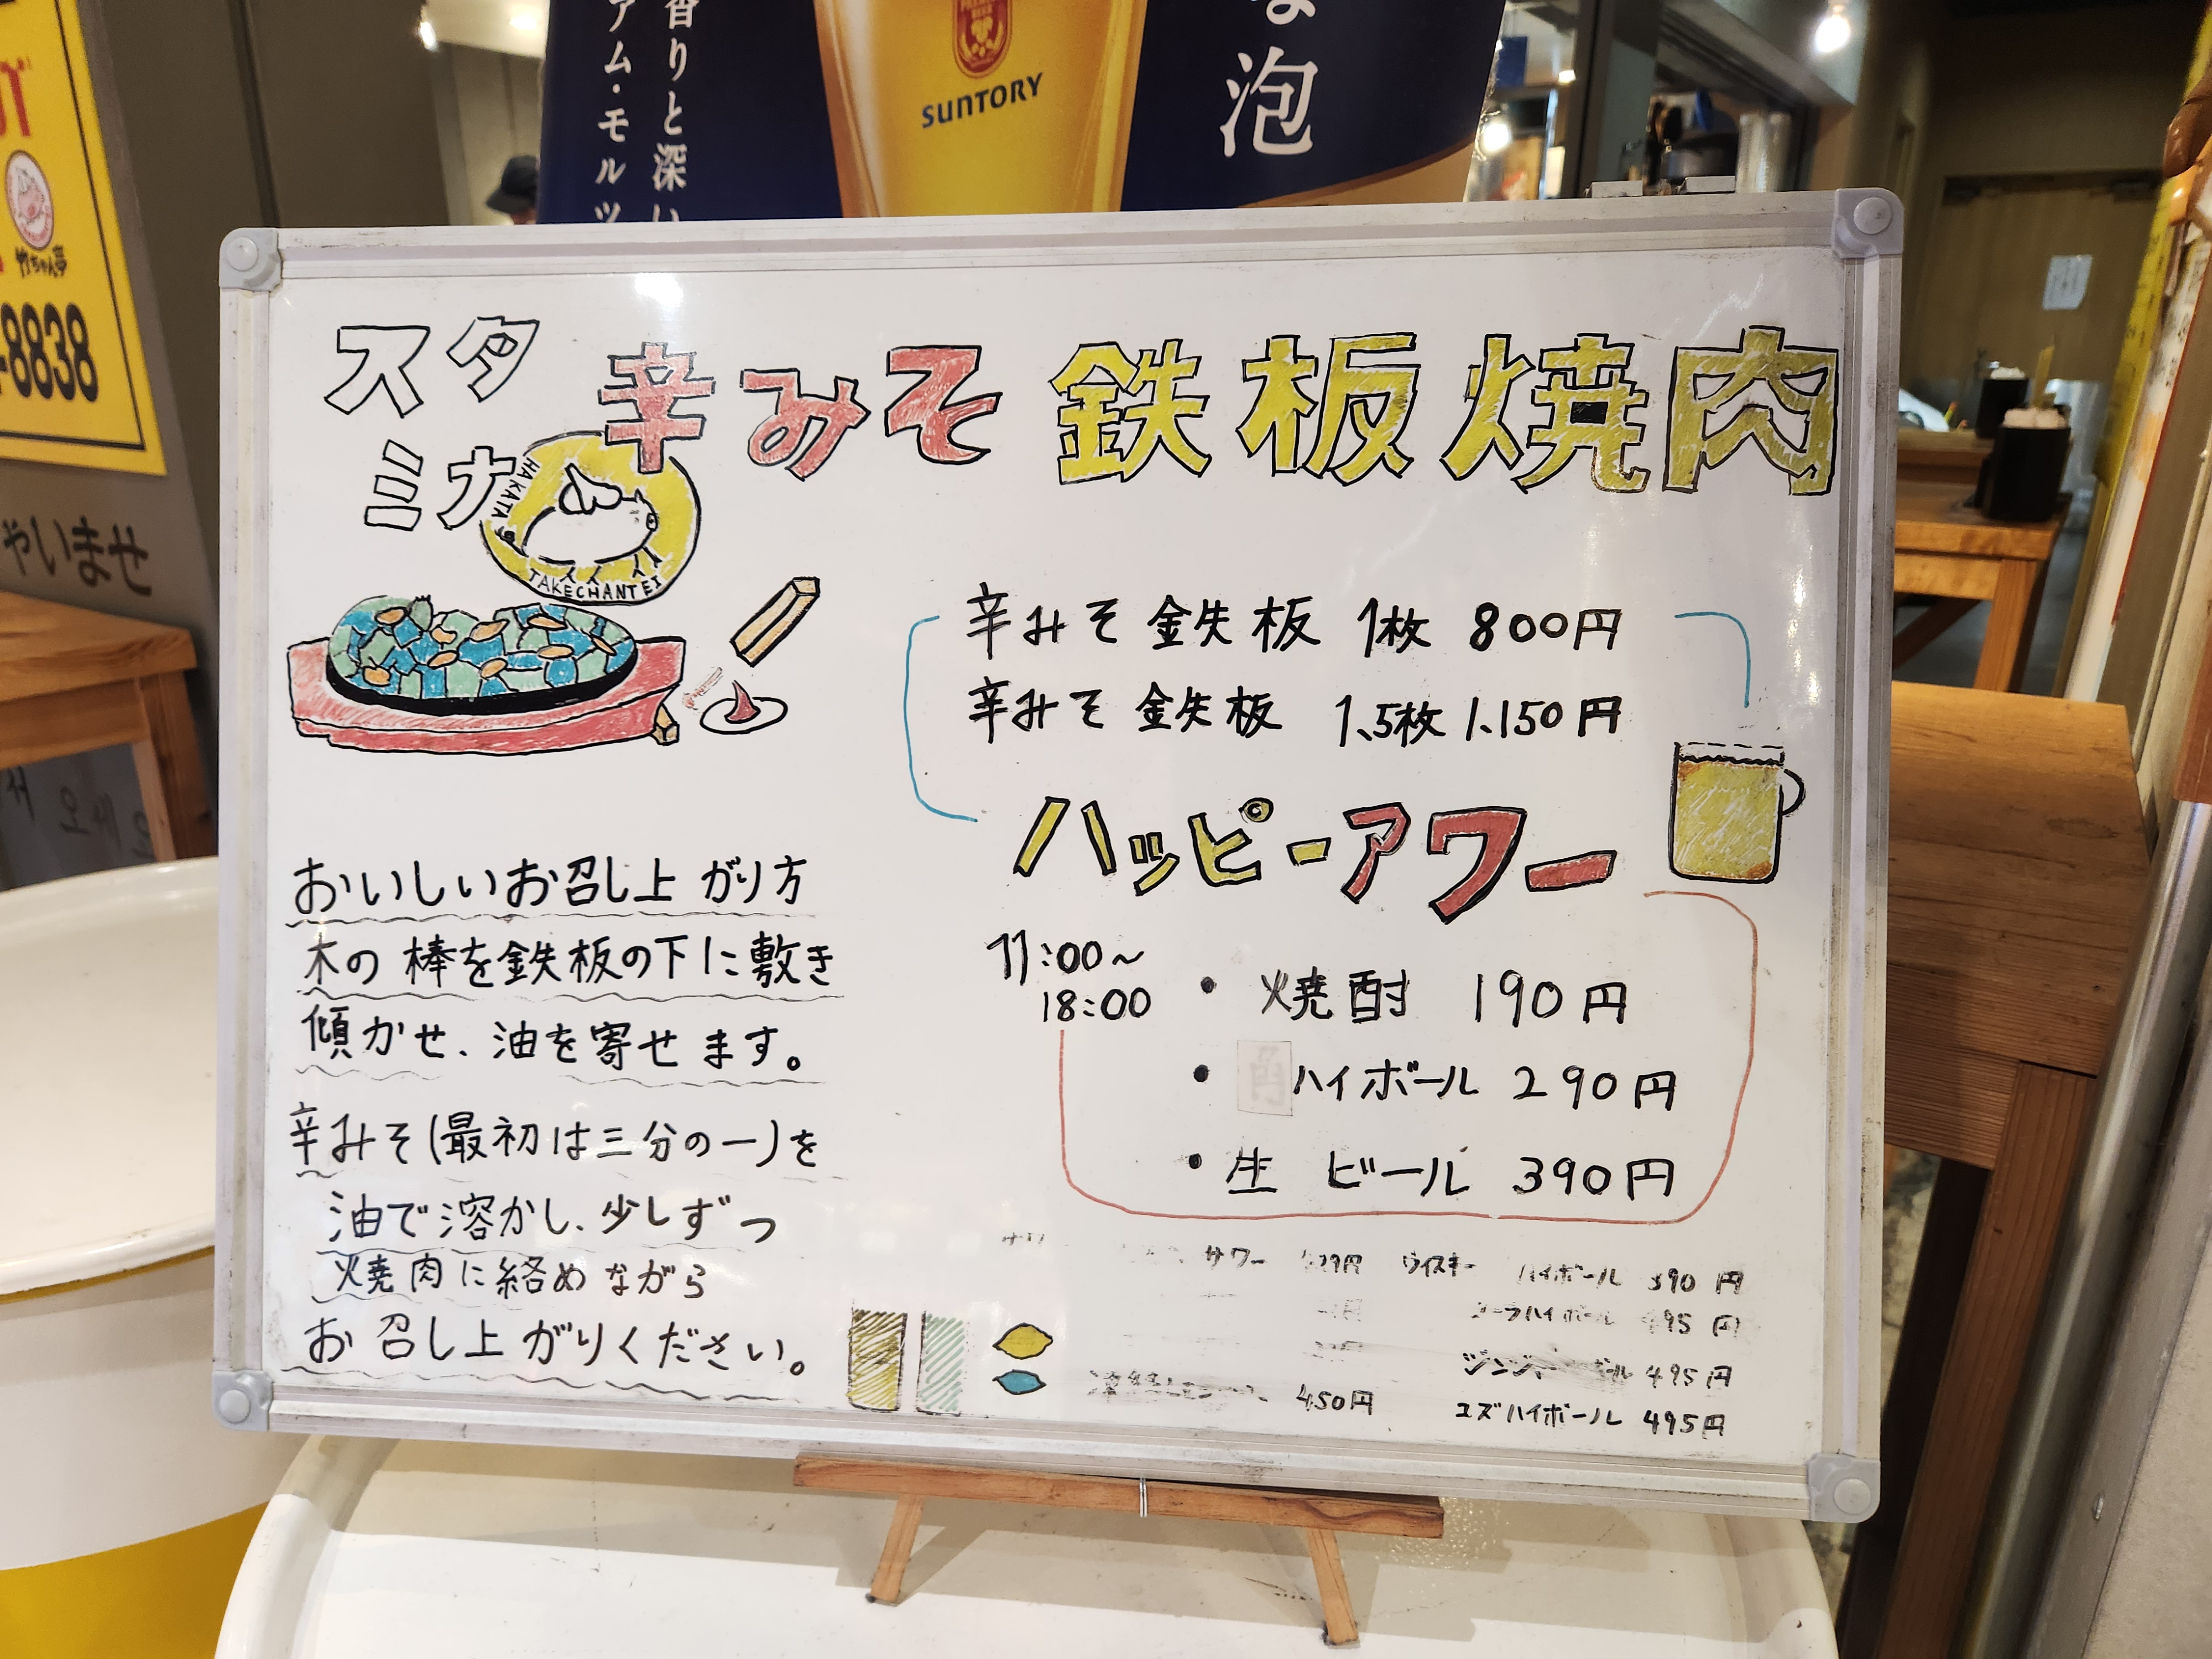 香りと深い
アム・モルツ
SUNTORY
な泡
竹ちゃん亭
-8838
やいませ
スタ
ミナ
辛みそ 鉄板焼肉
HAKATA
TAKECHANTEI
辛みそ 鉄板 1枚 800円
辛みそ 鉄板 1.5枚 1.150円
ハッピーアワー
11:00~
18:00
・ 焼酎 190円
・ 角ハイボール 290円
・生 ビール 390円
おいしいお召し上がり方
木の棒を鉄板の下に敷き
傾かせ、油を寄せます。
辛みそ(最初は三分の一)を
油で溶かし、少しずつ
焼肉に絡めながら
お召し上がりください。
サワー
ウイスキー ハイボール 390円
コーラハイボール 495円
495円
450円
ユズハイボール 495円